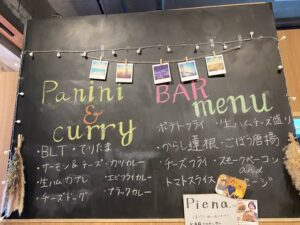 Panini
&
curry
・BLT・てりたま
・サーモン&チーズ・カツカレー
・生ハムカプレ ・エビフライカレー
・チーズドッグ ・ブラックカレー
BAR
menu
ポテトフライ ・生ハムチーズ盛り
・からし蓮根・ごぼう唐揚
・チーズフライ・スモークベーコン
・トマトスライス and
Piena